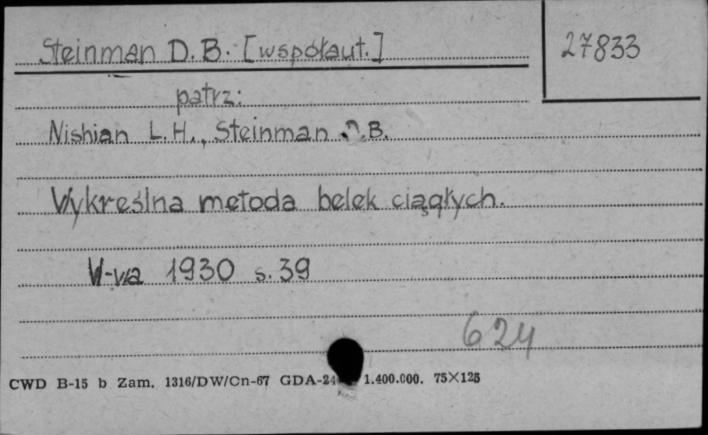 Steinman D.B. [współaut.]
27833
patrz:
Nishian L.H., Steinman D.B.
Wykreślna metoda belek ciągłych.
W-wa 1930 s. 39
624
CWD B-15 b Zam. 1316/DW/Cn-67 1.400.000. 75×125